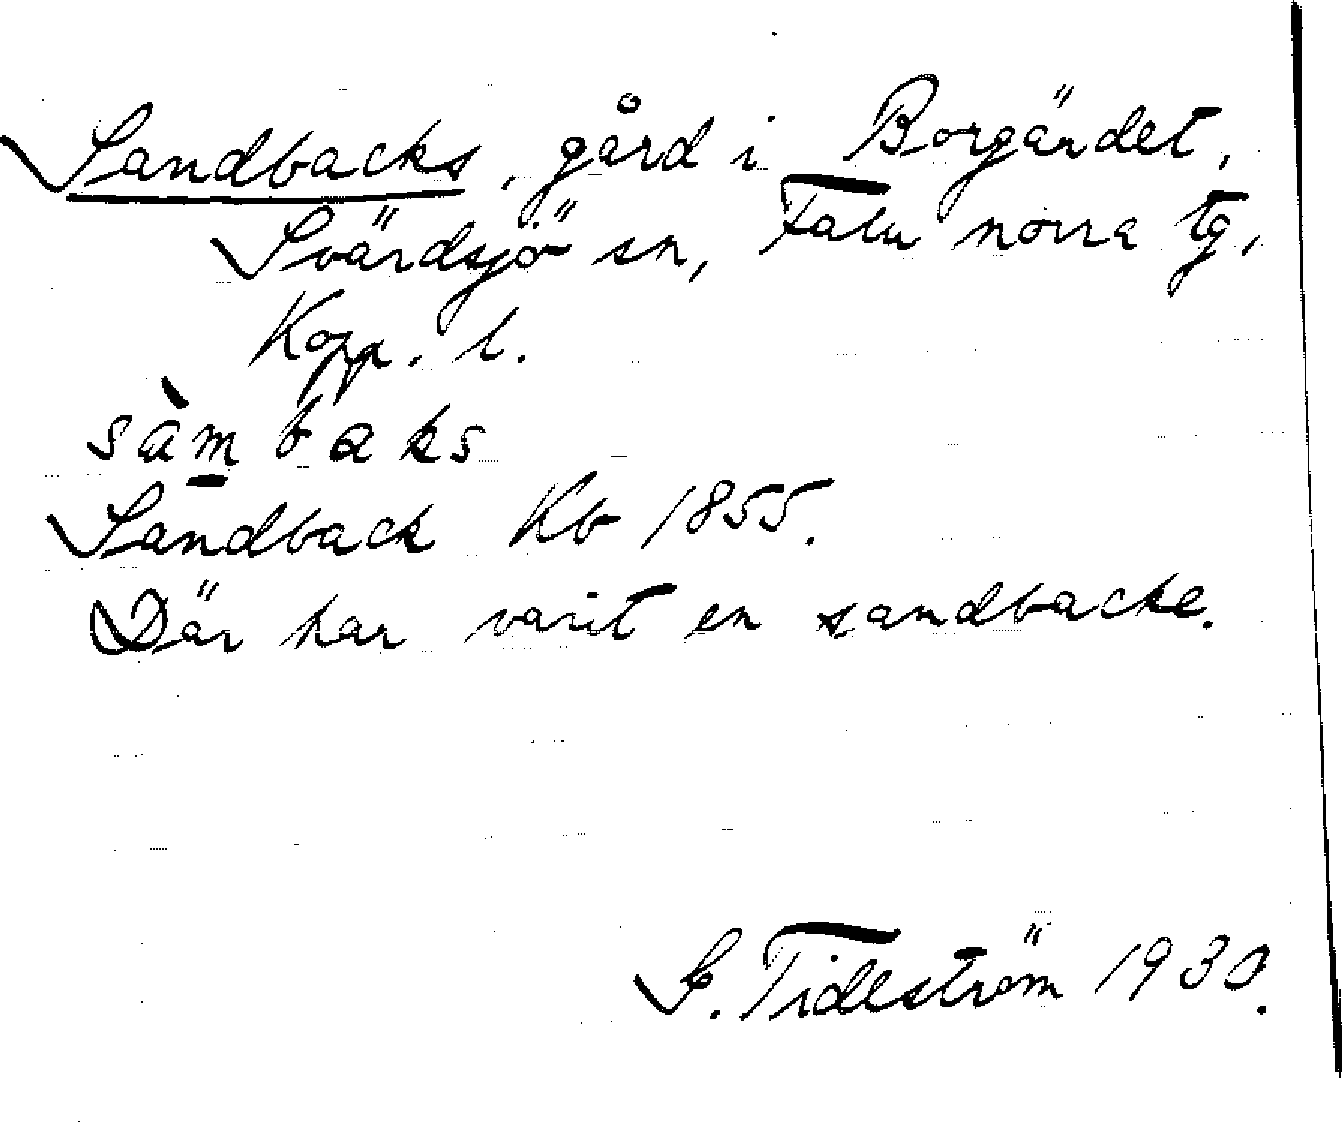 Sandbacks, gård i Borgärdet,
Svärdsjö sn, Falu norra tg,
Kopp. l.
sàmbaks
Sandback Kb 1855.
Där har varit en sandbacke.
S. Tideström 1930.